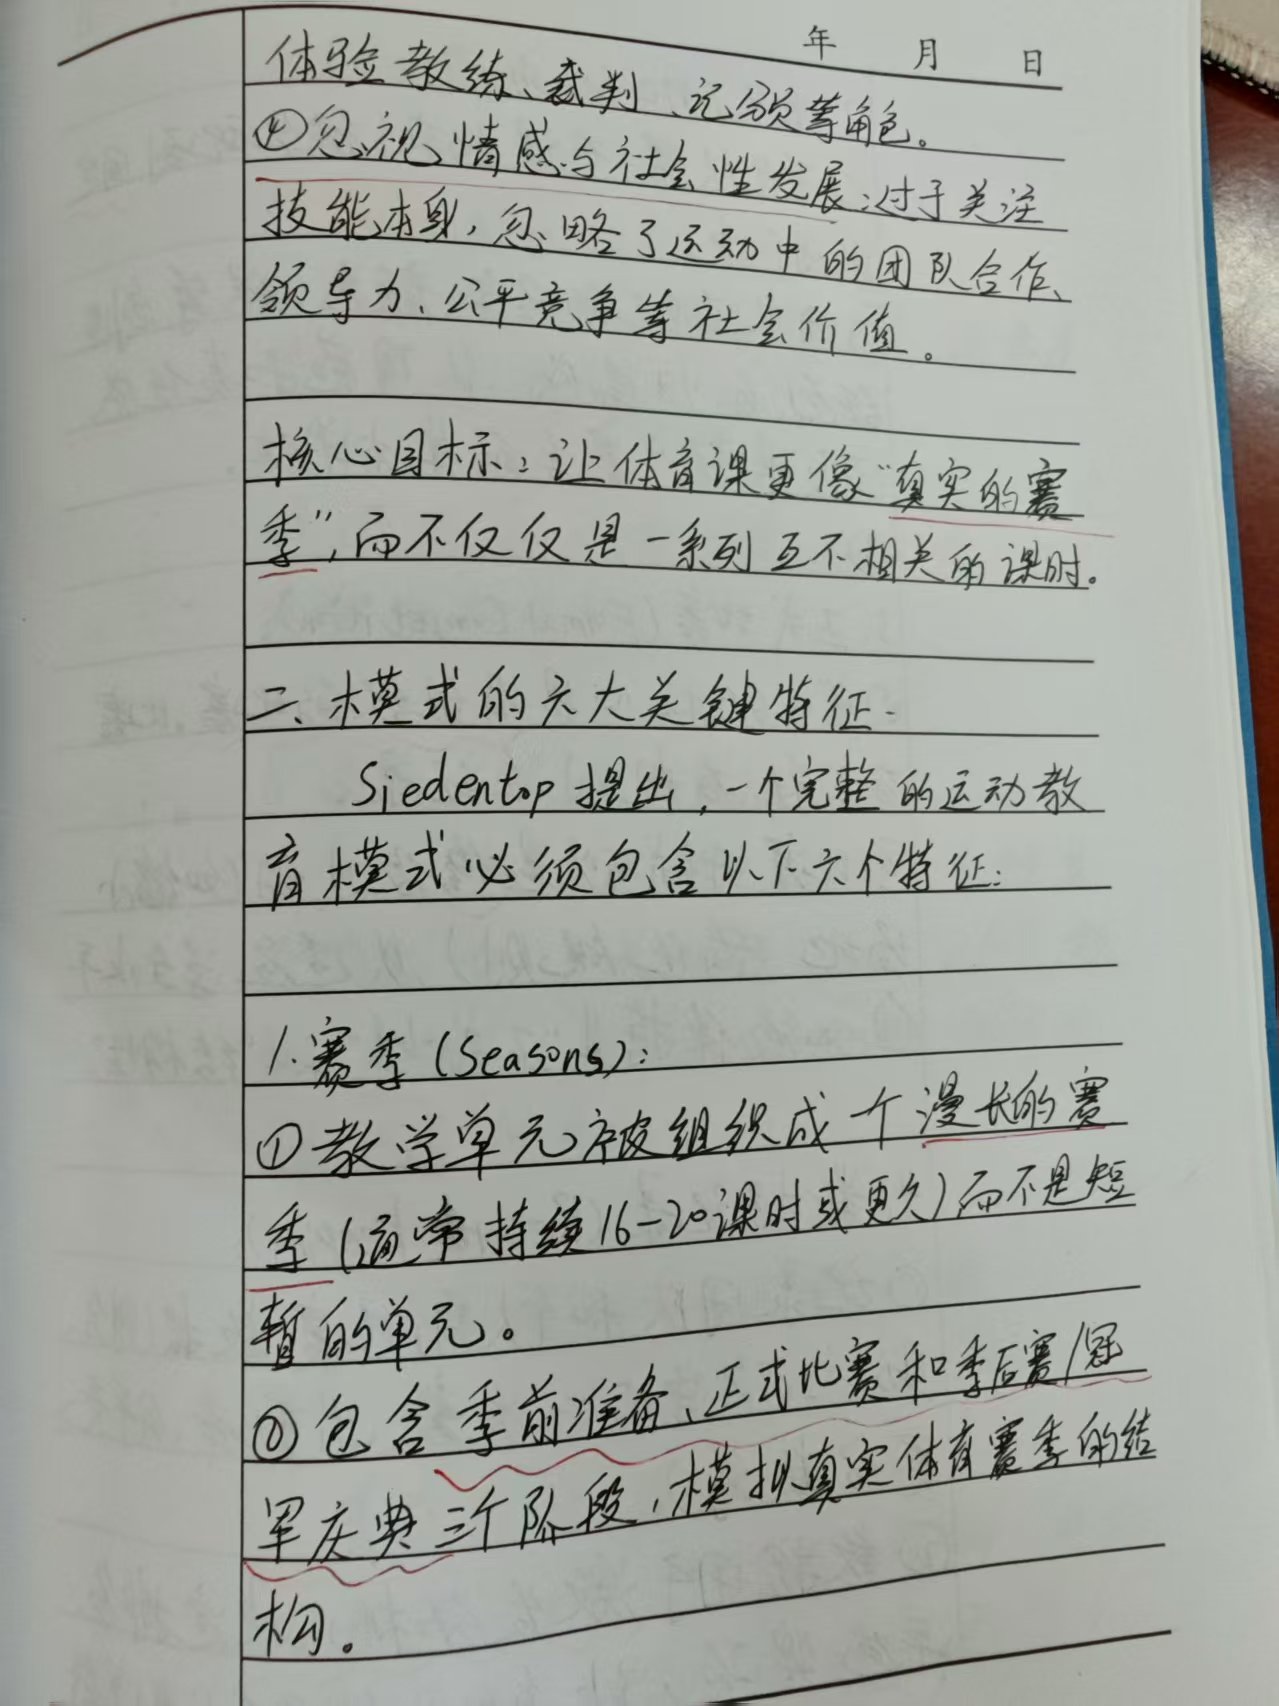 年 月 日
体验教练、裁判、记录员等角色。
④忽视情感与社会性发展：过于关注
技能本身，忽略了运动中的团队合作、
领导力、公平竞争等社会价值。
核心目标：让体育课更像“真实的赛
季”，而不仅仅是一系列互不相关的课时。
二、模式的六大关键特征.
Siedentop 提出，一个完整的运动教
育模式必须包含以下六个特征：
1.赛季(Seasons)：
①教学单元被组织成一个漫长的赛
季(通常持续16-20课时或更久)而不是短
暂的单元。
②包含季前准备、正式比赛和季后赛/冠
军庆典三个阶段，模拟真实体育赛季的结
构。